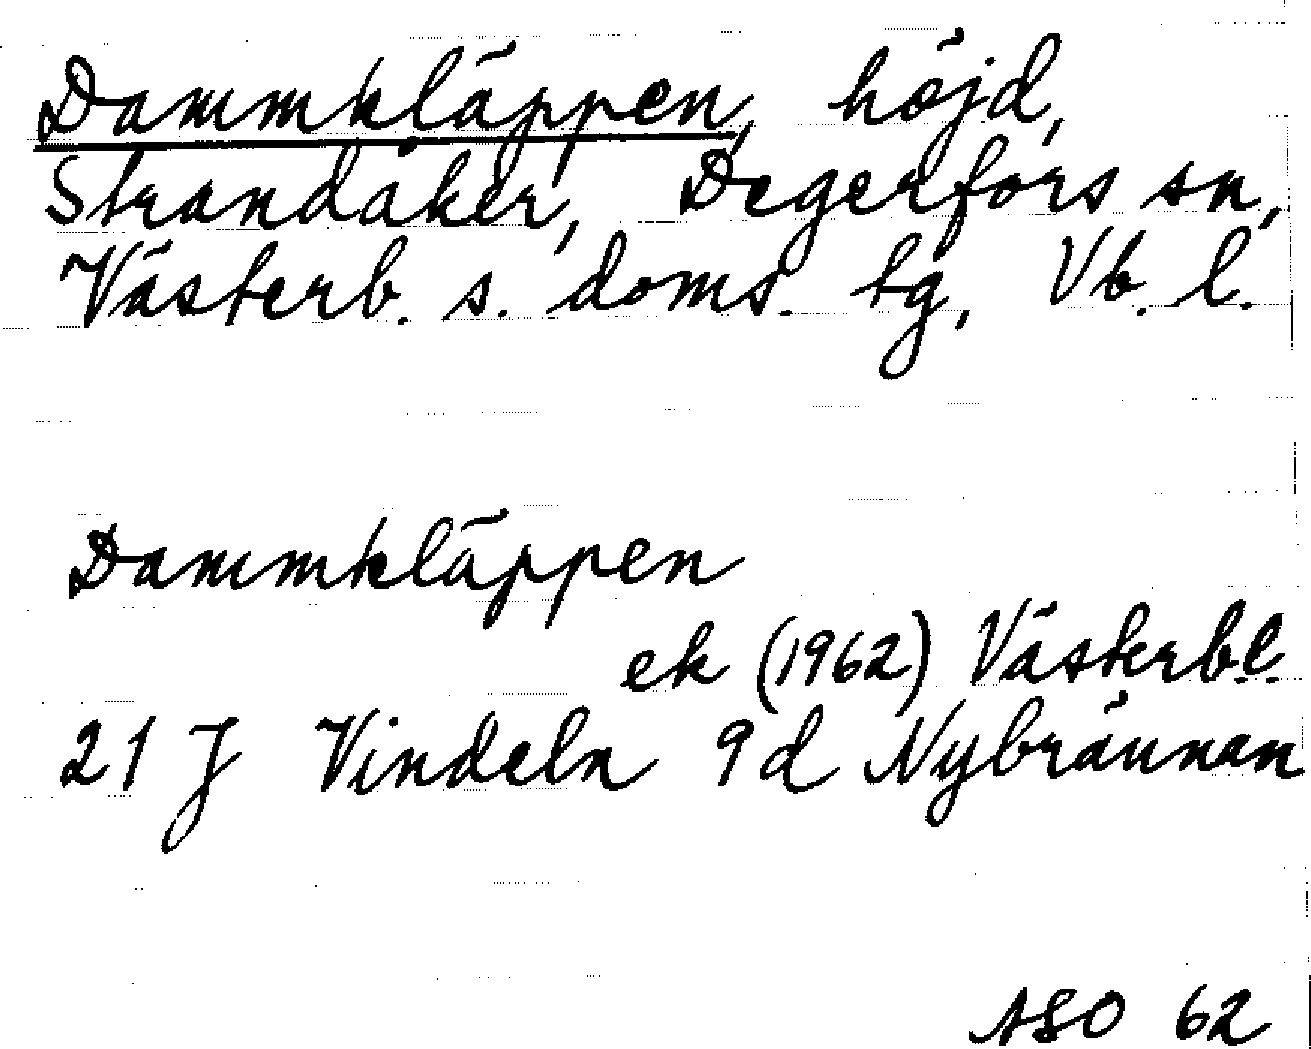 Dammkläppen, höjd,
Strandåker, Degerfors sn,
Västerb. s. doms. tg, Vb. l.
Dammkläppen
ek (1962) Västerb.l.
21 J Vindeln 9d Nybrännan
ASO 62